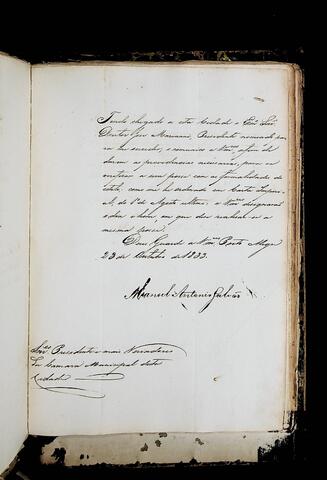 Tendo chegado a esta Cidade o Exmo Snr
Doutor José Marianni, Presidente nomeado pa
ra me succeder, o communico a Vmces, afim de
darem as providencias necessarias, para se
verificar a sua posse com as formalidades do
estilo, como me he ordenado em Carta Imperi
al, de 1º de Agosto ultimo, e Vmces designarão
o dia e hora, em que deve realisar-se a
mesma posse.
Deos Guarde a Vmces Porto Alegre
23 de Outubro de 1833.
Manoel Antonio Galvão
Snres Presidente e mais Vereadores
da Camara Municipal desta
Cidade